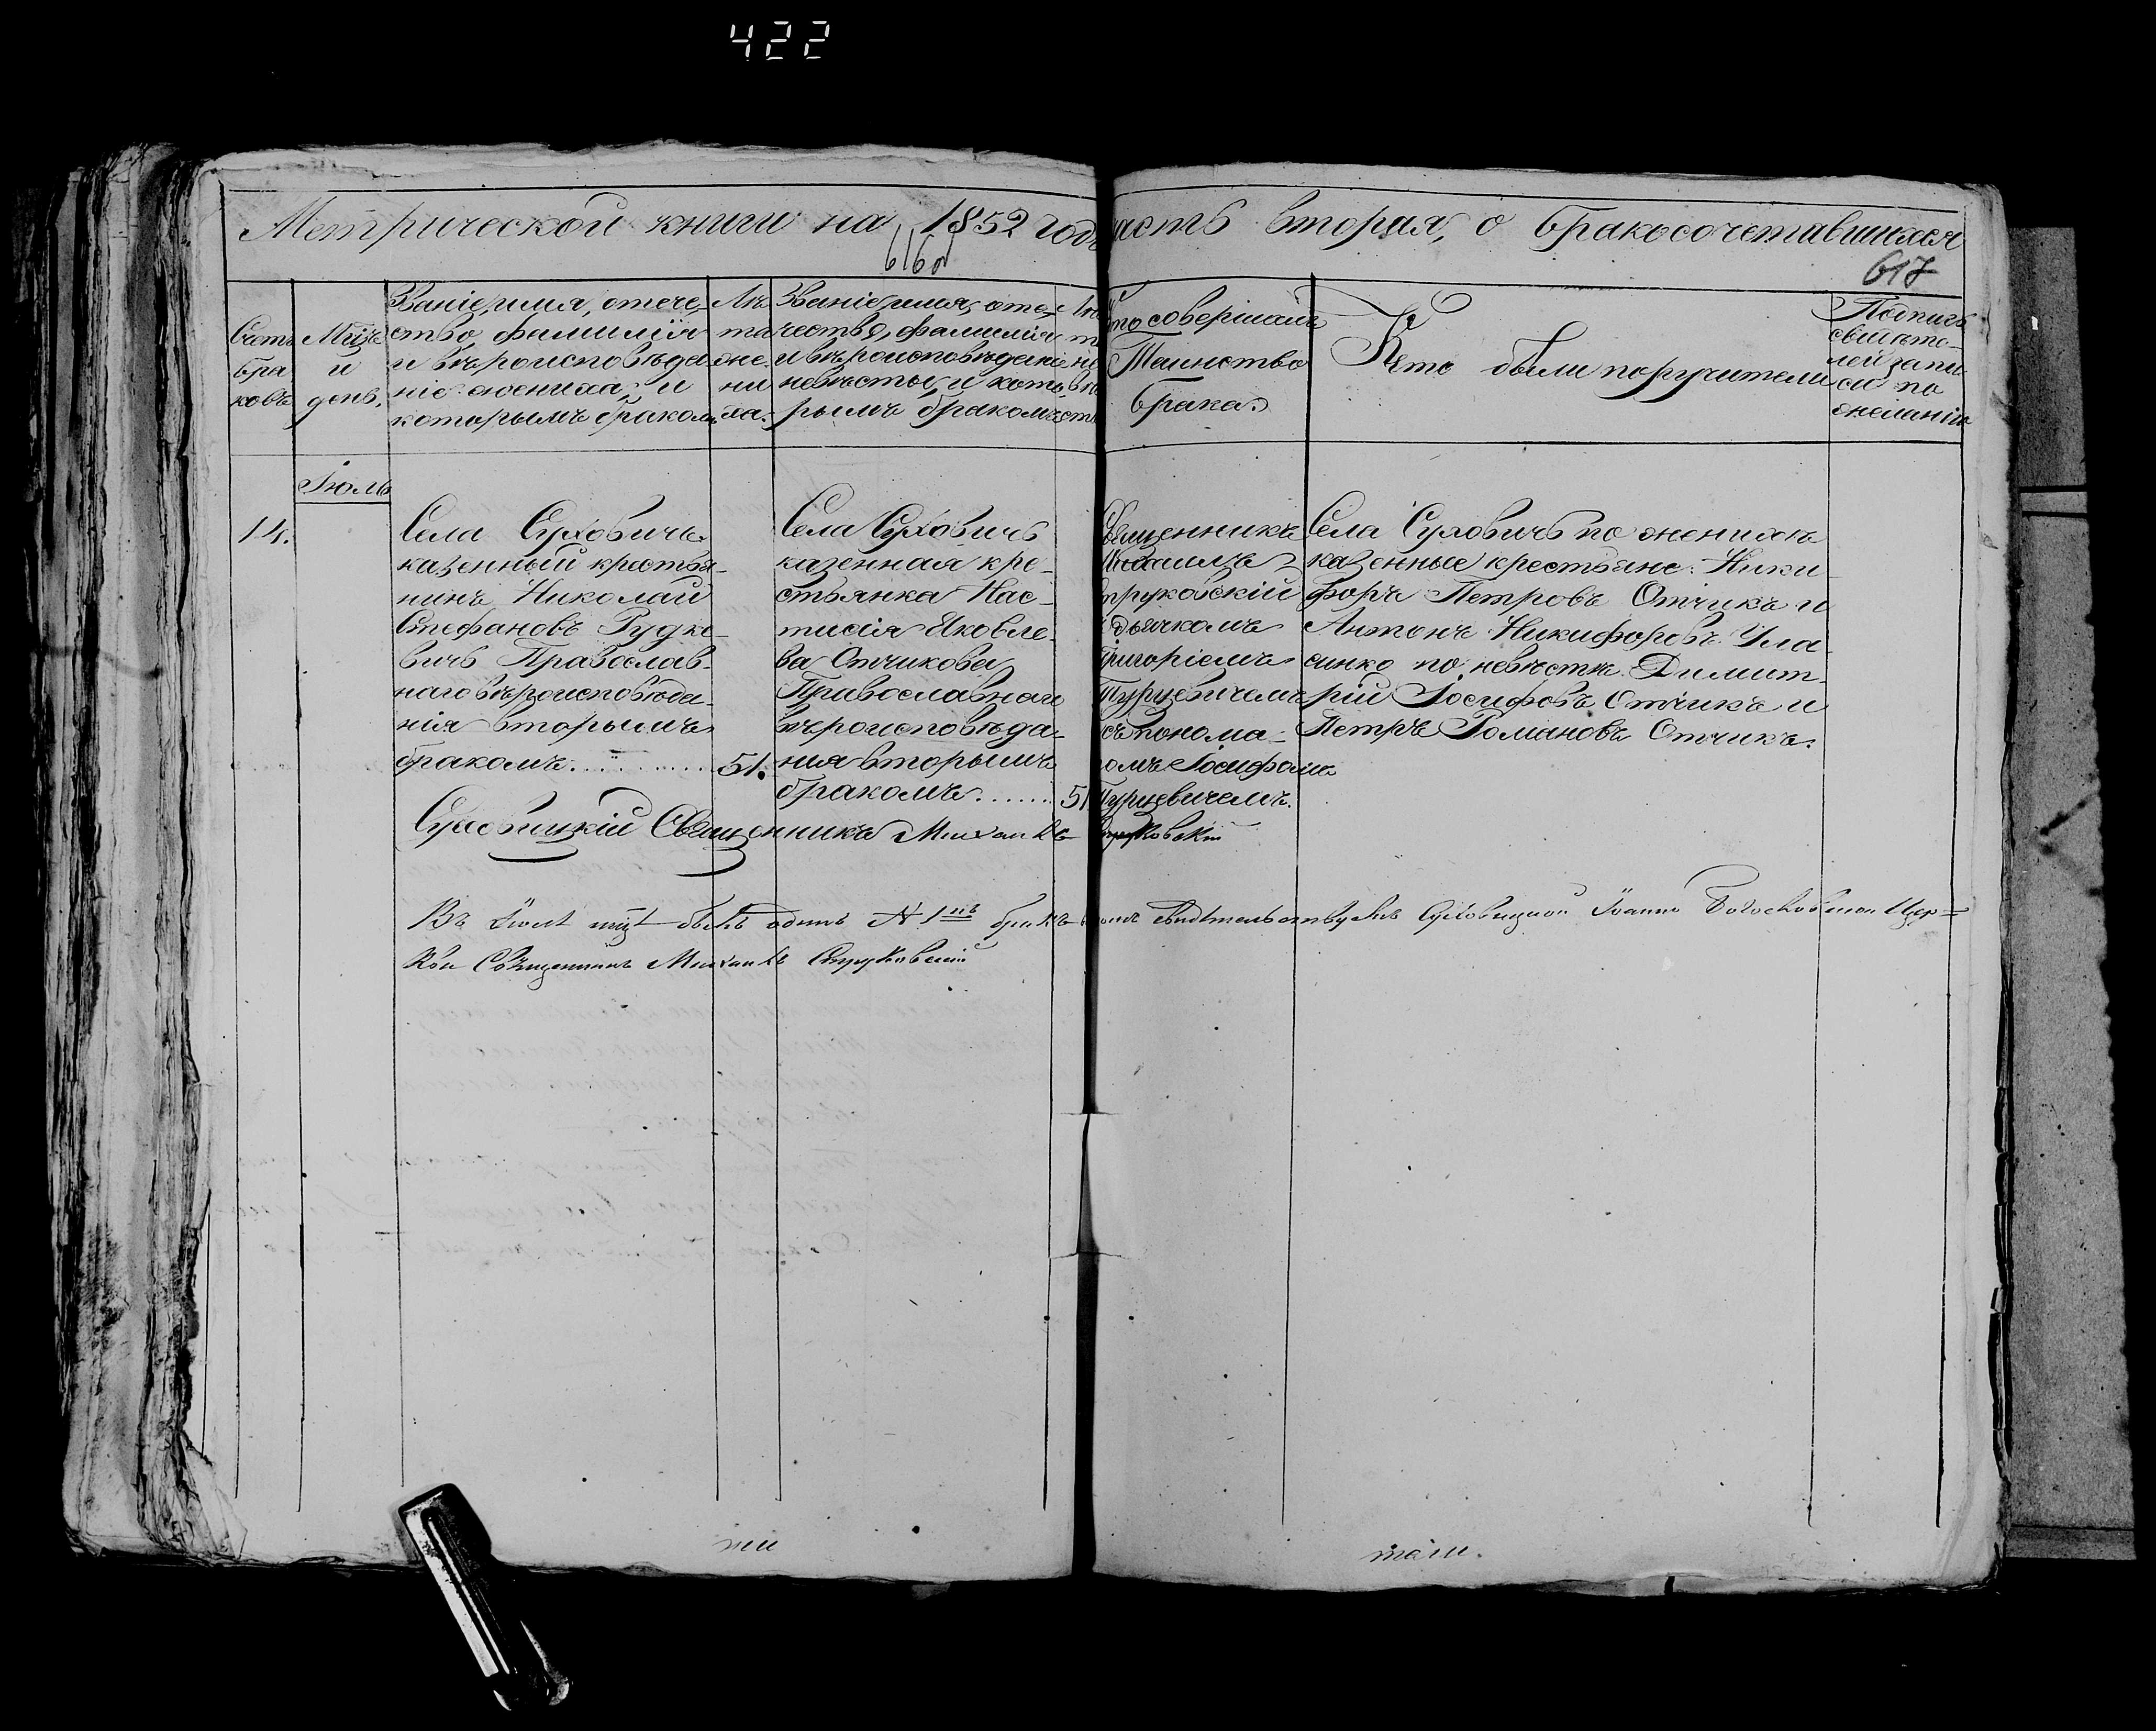 422
Метрической книги на 1852 годъ часть вторая, о бракосочетавшихся
616об
617
Счетъ браковъ
Мѣцъ и день.
Званіе, имя, отече-
ство, фамилія
и вѣроисповѣда-
ніе жениха, и
которымъ бракомъ
Лѣ-
та
же-
ни
ха.
Званіе, имя, оте-
чество, фамилія
и вѣроисповѣданіе
невѣсты, и кото-
рымъ бракомъ
Кто совершалъ
Таинство
брака.
Кто были поручители
Подпись
свидѣте-
лей запи
си по
желанію
Іюль
14.
Села Суховичъ
казенный крестья-
нинъ Николай
Стефановъ Рудко-
вичъ Православ-
наго вѣроисповѣда-
нія вторымъ
бракомъ 51.
Села Суховичъ
казенная кре-
стьянка Нас-
тасія Яковле-
ва Отчикова
Православнаго
вѣроисповѣда-
нія вторымъ
бракомъ 51
Священникъ
Михаилъ
Струковскій
съ дьячкомъ
Григоріемъ
Турцевичемъ
съ понома-
ромъ Іосифомъ
Турцевичемъ.
Села Суховичъ по женихѣ
казенные крестьяне. Ники-
форъ Петровъ Отчикъ и
Антонъ Никифоровъ Ула-
синко по невѣстѣ Димит-
рій Іосифовъ Отчикъ и
Петръ Романовъ Отчикъ.
Суховицкій Священникъ Михаилъ Струковскій
Въ Іюлѣ мцѣ былъ одинъ № 1нъ бракъ въ томъ свидѣтельствуетъ Суховицкой Іоанно Богословской Цер-
кви Священникъ Михаилъ Струковскій